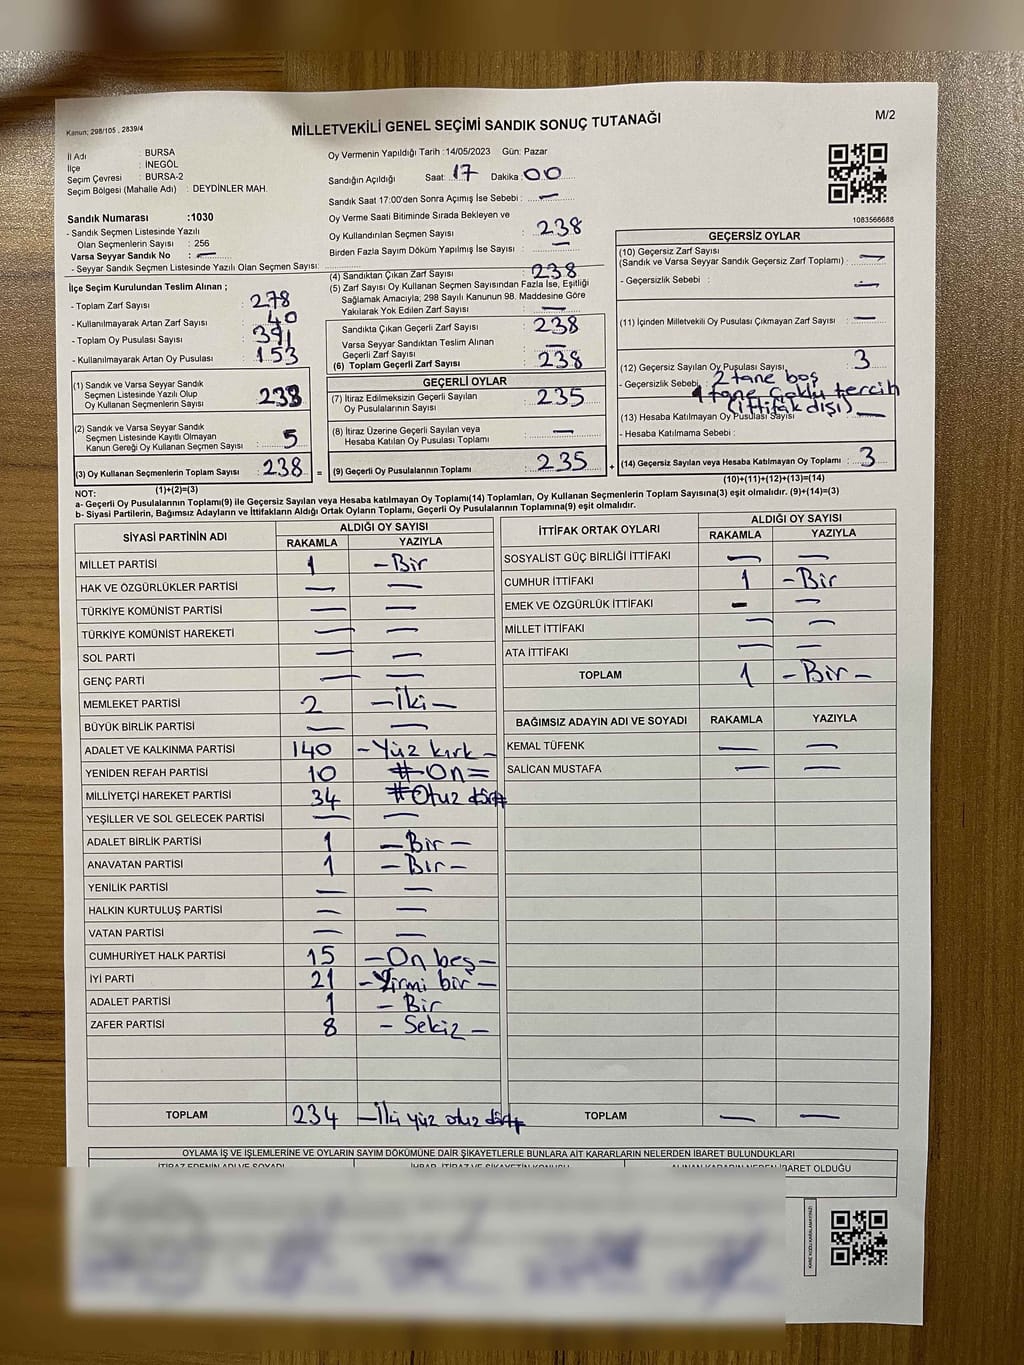 Kanun; 298/105 , 2839/4
MİLLETVEKİLİ GENEL SEÇİMİ SANDIK SONUÇ TUTANAĞI
M/2
İl Adı : BURSA
İlçe : İNEGÖL
Seçim Çevresi : BURSA-2
Seçim Bölgesi (Mahalle Adı) : DEYDİNLER MAH.
Sandık Numarası :1030
- Sandık Seçmen Listesinde Yazılı
Olan Seçmenlerin Sayısı : 256
Varsa Seyyar Sandık No : —
- Seyyar Sandık Seçmen Listesinde Yazılı Olan Seçmen Sayısı:
Oy Vermenin Yapıldığı Tarih :14/05/2023 Gün: Pazar
Sandığın Açıldığı Saat: 17 Dakika : 00
Sandık Saat 17:00'den Sonra Açımış İse Sebebi : —
Oy Verme Saati Bitiminde Sırada Bekleyen ve
Oy Kullandırılan Seçmen Sayısı : 238
Birden Fazla Sayım Döküm Yapılmış İse Sayısı : —
1083566688
İlçe Seçim Kurulundan Teslim Alınan ;
- Toplam Zarf Sayısı : 278
- Kullanılmayarak Artan Zarf Sayısı : 40
- Toplam Oy Pusulası Sayısı : 391
- Kullanılmayarak Artan Oy Pusulası : 153
(1) Sandık ve Varsa Seyyar Sandık
Seçmen Listesinde Yazılı Olup
Oy Kullanan Seçmenlerin Sayısı : 233
(2) Sandık ve Varsa Seyyar Sandık
Seçmen Listesinde Kayıtlı Olmayan
Kanun Gereği Oy Kullanan Seçmen Sayısı : 5
(3) Oy Kullanan Seçmenlerin Toplam Sayısı : 238 =
(1)+(2)=(3)
(4) Sandıktan Çıkan Zarf Sayısı : 238
(5) Zarf Sayısı Oy Kullanan Seçmen Sayısından Fazla İse, Eşitliği
Sağlamak Amacıyla; 298 Sayılı Kanunun 98. Maddesine Göre
Yakılarak Yok Edilen Zarf Sayısı : —
Sandıkta Çıkan Geçerli Zarf Sayısı : 238
Varsa Seyyar Sandıktan Teslim Alınan
Geçerli Zarf Sayısı : —
(6) Toplam Geçerli Zarf Sayısı : 238
GEÇERLİ OYLAR
(7) İtiraz Edilmeksizin Geçerli Sayılan
Oy Pusulalarının Sayısı : 235
(8) İtiraz Üzerine Geçerli Sayılan veya
Hesaba Katılan Oy Pusulası Toplamı : —
(9) Geçerli Oy Pusulalarının Toplamı : 235 +
GEÇERSİZ OYLAR
(10) Geçersiz Zarf Sayısı
(Sandık ve Varsa Seyyar Sandık Geçersiz Zarf Toplamı) : —
- Geçersizlik Sebebi : —
(11) İçinden Milletvekili Oy Pusulası Çıkmayan Zarf Sayısı : —
(12) Geçersiz Sayılan Oy Pusulası Sayısı : 3
- Geçersizlik Sebebi 2 tane boş
1 tane çoklu tercih
(ittifak dışı)
(13) Hesaba Katılmayan Oy Pusulası Sayısı —
- Hesaba Katılmama Sebebi :
(14) Geçersiz Sayılan veya Hesaba Katılmayan Oy Toplamı : 3
(10)+(11)+(12)+(13)=(14)
NOT:
a- Geçerli Oy Pusulalarının Toplamı(9) ile Geçersiz Sayılan veya Hesaba katılmayan Oy Toplamı(14) Toplamları, Oy Kullanan Seçmenlerin Toplam Sayısına(3) eşit olmalıdır. (9)+(14)=(3)
b- Siyasi Partilerin, Bağımsız Adayların ve İttifakların Aldığı Ortak Oyların Toplamı, Geçerli Oy Pusulalarının Toplamına(9) eşit olmalıdır.
SİYASİ PARTİNİN ADI ALDIĞI OY SAYISI
RAKAMLA YAZIYLA
MİLLET PARTİSİ 1 -Bir
HAK VE ÖZGÜRLÜKLER PARTİSİ — —
TÜRKİYE KOMÜNİST PARTİSİ — —
TÜRKİYE KOMÜNİST HAREKETİ — —
SOL PARTİ — —
GENÇ PARTİ — —
MEMLEKET PARTİSİ 2 -İki-
BÜYÜK BİRLİK PARTİSİ — —
ADALET VE KALKINMA PARTİSİ 140 -Yüz kırk-
YENİDEN REFAH PARTİSİ 10 #On=
MİLLİYETÇİ HAREKET PARTİSİ 34 #Otuz dört#
YEŞİLLER VE SOL GELECEK PARTİSİ — —
ADALET BİRLİK PARTİSİ 1 -Bir-
ANAVATAN PARTİSİ 1 -Bir-
YENİLİK PARTİSİ — —
HALKIN KURTULUŞ PARTİSİ — —
VATAN PARTİSİ — —
CUMHURİYET HALK PARTİSİ 15 -On beş-
İYİ PARTİ 21 -Yirmi bir-
ADALET PARTİSİ 1 -Bir
ZAFER PARTİSİ 8 -Sekiz-
TOPLAM 234 -İki yüz otuz dört#
İTTİFAK ORTAK OYLARI ALDIĞI OY SAYISI
RAKAMLA YAZIYLA
SOSYALİST GÜÇ BİRLİĞİ İTTİFAKI — —
CUMHUR İTTİFAKI 1 -Bir
EMEK VE ÖZGÜRLÜK İTTİFAKI — —
MİLLET İTTİFAKI — —
ATA İTTİFAKI — —
TOPLAM 1 -Bir-
BAĞIMSIZ ADAYIN ADI VE SOYADI RAKAMLA YAZIYLA
KEMAL TÜFENK — —
SALİCAN MUSTAFA — —
TOPLAM — —
OYLAMA İŞ VE İŞLEMLERİNE VE OYLARIN SAYIM DÖKÜMÜNE DAİR ŞİKAYETLERLE BUNLARA AİT KARARLARIN NELERDEN İBARET BULUNDUKLARI
İTİRAZ EDENİN ADI VE SOYADI İHBAR, İTİRAZ VE ŞİKAYETİN KONUSU ALINAN KARARIN NEDEN İBARET OLDUĞU